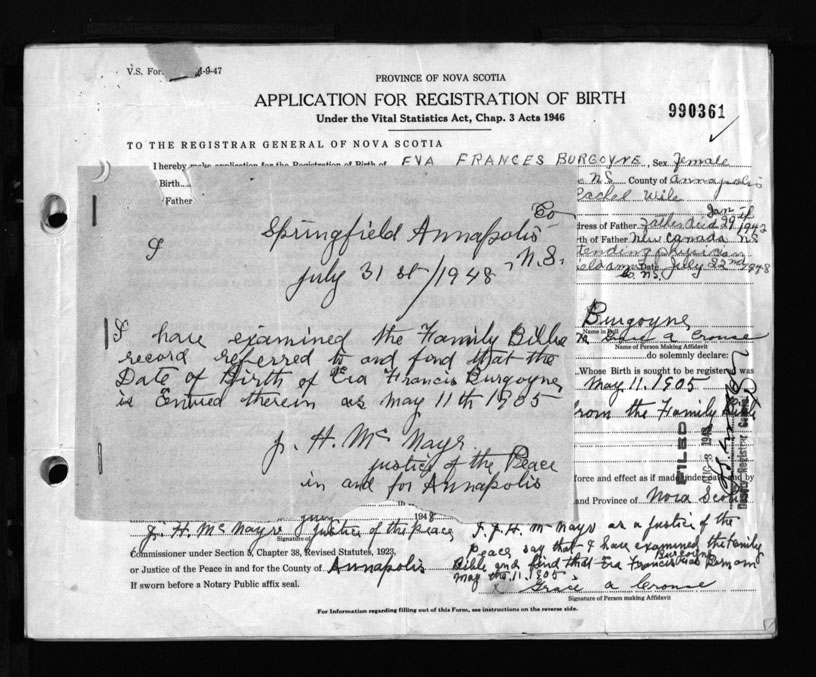 V.S. For. 4-9-47
PROVINCE OF NOVA SCOTIA
APPLICATION FOR REGISTRATION OF BIRTH
990361
Under the Vital Statistics Act, Chap. 3 Acts 1946
TO THE REGISTRAR GENERAL OF NOVA SCOTIA
I hereby make application for the Registration of Birth of EVA FRANCES BURGOYNE, Sex female
Birth
N.S. County of Annapolis
Father
Rachel Wile
dress of Father Father died Jan 29 1942
th of Father New Canada NS
tending physician
Date July 22nd 1948
Co. N.S.
Springfield Annapolis Co
N.S.
July 31st/1948
I have examined the Family Bible
record referred to and find that the
Date of Birth of Eva Francis Burgoyne
is Entered therein as May 11th 1905
J. H. McNayr
Justice of the Peace
in and for Annapolis
Burgoyne
Name in Full
Grace A Crouse
Name of Person Making Affidavit
do solemnly declare:
Whose Birth is sought to be registered was
May 11, 1905
from the Family Bible
FILED
AUG 3 1948
Deputy Registrar General
force and effect as if made under oath and by
and Province of Nova Scotia
1948
J. H. McNayr Justice of the Peace
Signature of
Commissioner under Section 5, Chapter 38, Revised Statutes, 1923,
or Justice of the Peace in and for the County of Annapolis
If sworn before a Notary Public affix seal.
I J H McNayr as a Justice of the
Peace say that I have examined the Family
Bible and find that Eva Francis Burgoyne was Born on
May the 11. 1905
Grace A Crouse
Signature of Person making Affidavit
For Information regarding filling out of this Form, see instructions on the reverse side.